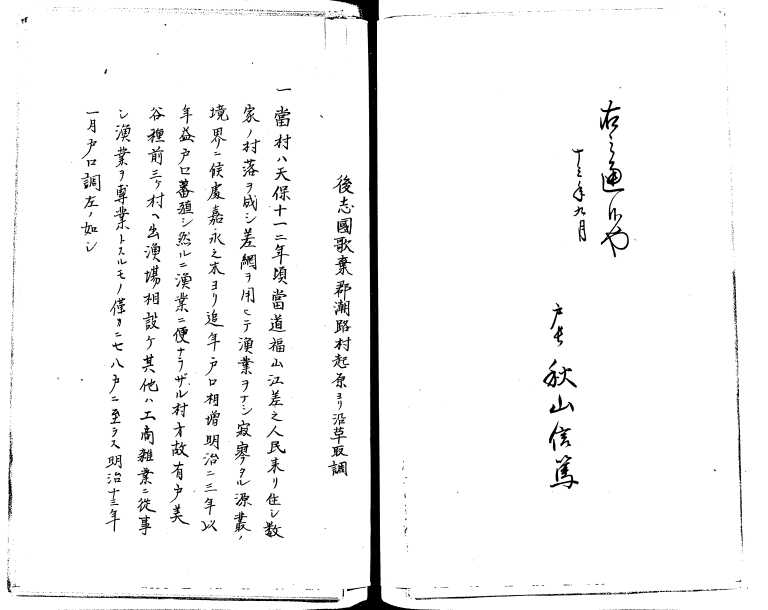 右之通候也
十三年九月
戸長 秋山信篤
後志國歌棄郡潮路村起原ヨリ沿革取調
一 當村ハ天保十一二年頃當道福山江差之人民来リ住シ数
家ノ村落ヲ成シ差網ヲ用ヒテ漁業ヲナシ寂寥タル源叢ノ
境界ニ候處嘉永之末ヨリ追年戸口相増明治二三年以
年益戸口蕃殖シ然ルニ漁業ニ便ナラザル村才故有戸美
谷種前三ケ村ヘ出漁場相設ケ其他ハ工商雜業ニ從事
シ漁業ヲ專業トスルモノ僅カニ七八戸ニ至ラス明治十三年
一月戸口調左ノ如シ